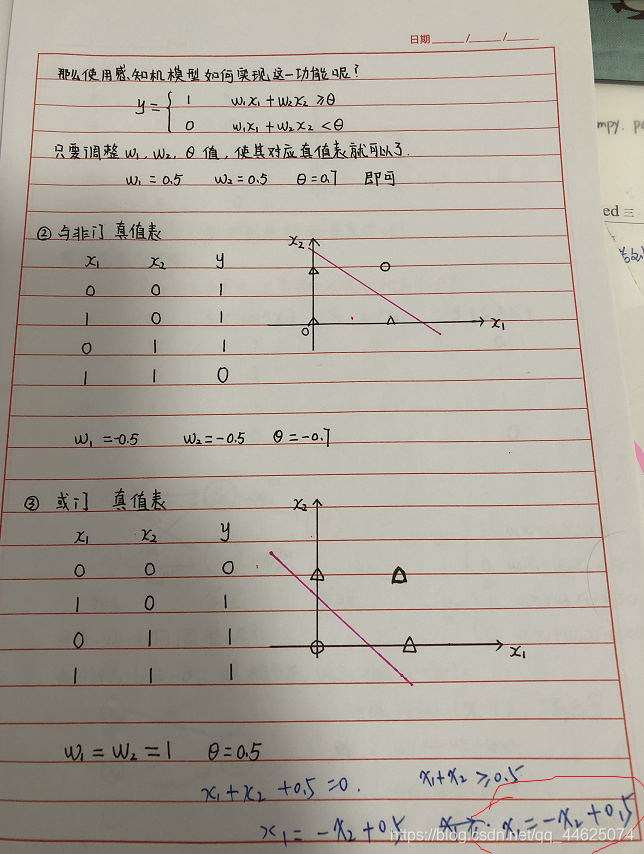 日期 / /
那么使用感知机模型如何实现这一功能呢?
y = { 1 w₁x₁ + w₂x₂ ≥ θ
0 w₁x₁ + w₂x₂ < θ
只要调整 w₁, w₂, θ 值, 使其对应真值表就可以了.
w₁ = 0.5 w₂ = 0.5 θ = 0.7 即可
② 与非门 真值表
x₁ x₂ y
0 0 1
1 0 1
0 1 1
1 1 0
x₂
0
x₁
w₁ = -0.5 w₂ = -0.5 θ = -0.7
③ 或门 真值表
x₁ x₂ y
0 0 0
1 0 1
0 1 1
1 1 1
x₂
x₁
w₁ = w₂ = 1 θ = 0.5
x₁ + x₂ + 0.5 = 0. x₁ + x₂ ≥ 0.5
x₁ = -x₂ + 0.5 x₁ = -x₂ + 0.5
https://blog.csdn.net/qq_44625074
mpy. pe
ed 三